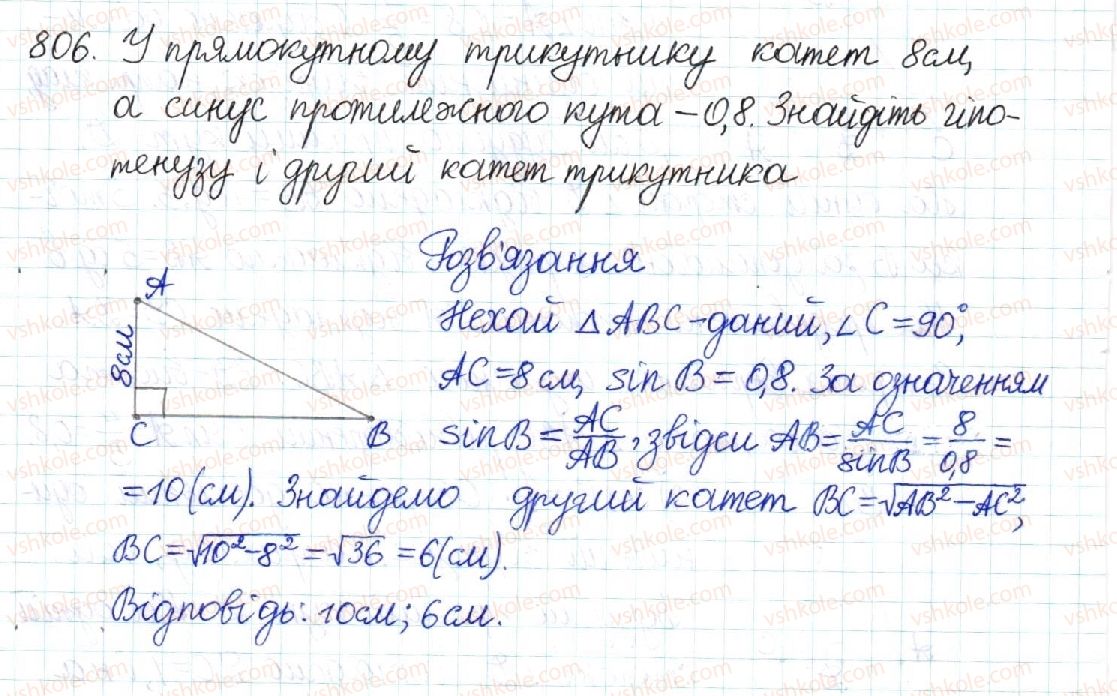 806. У прямокутному трикутнику катет 8см,
а синус протилежного кута – 0,8. Знайдіть гіпо-
тенузу і другий катет трикутника
Розв'язання
A
8см
C
B
Нехай △ABC – даний, ∠C = 90°,
AC = 8 см, sin B = 0,8. За означенням
sin B = AC/AB, звідси AB = AC/sin B = 8/0,8 =
= 10 (см). Знайдемо другий катет BC = √(AB² – AC²),
BC = √(10² – 8²) = √36 = 6 (см).
Відповідь: 10см; 6см.
vshkole.com